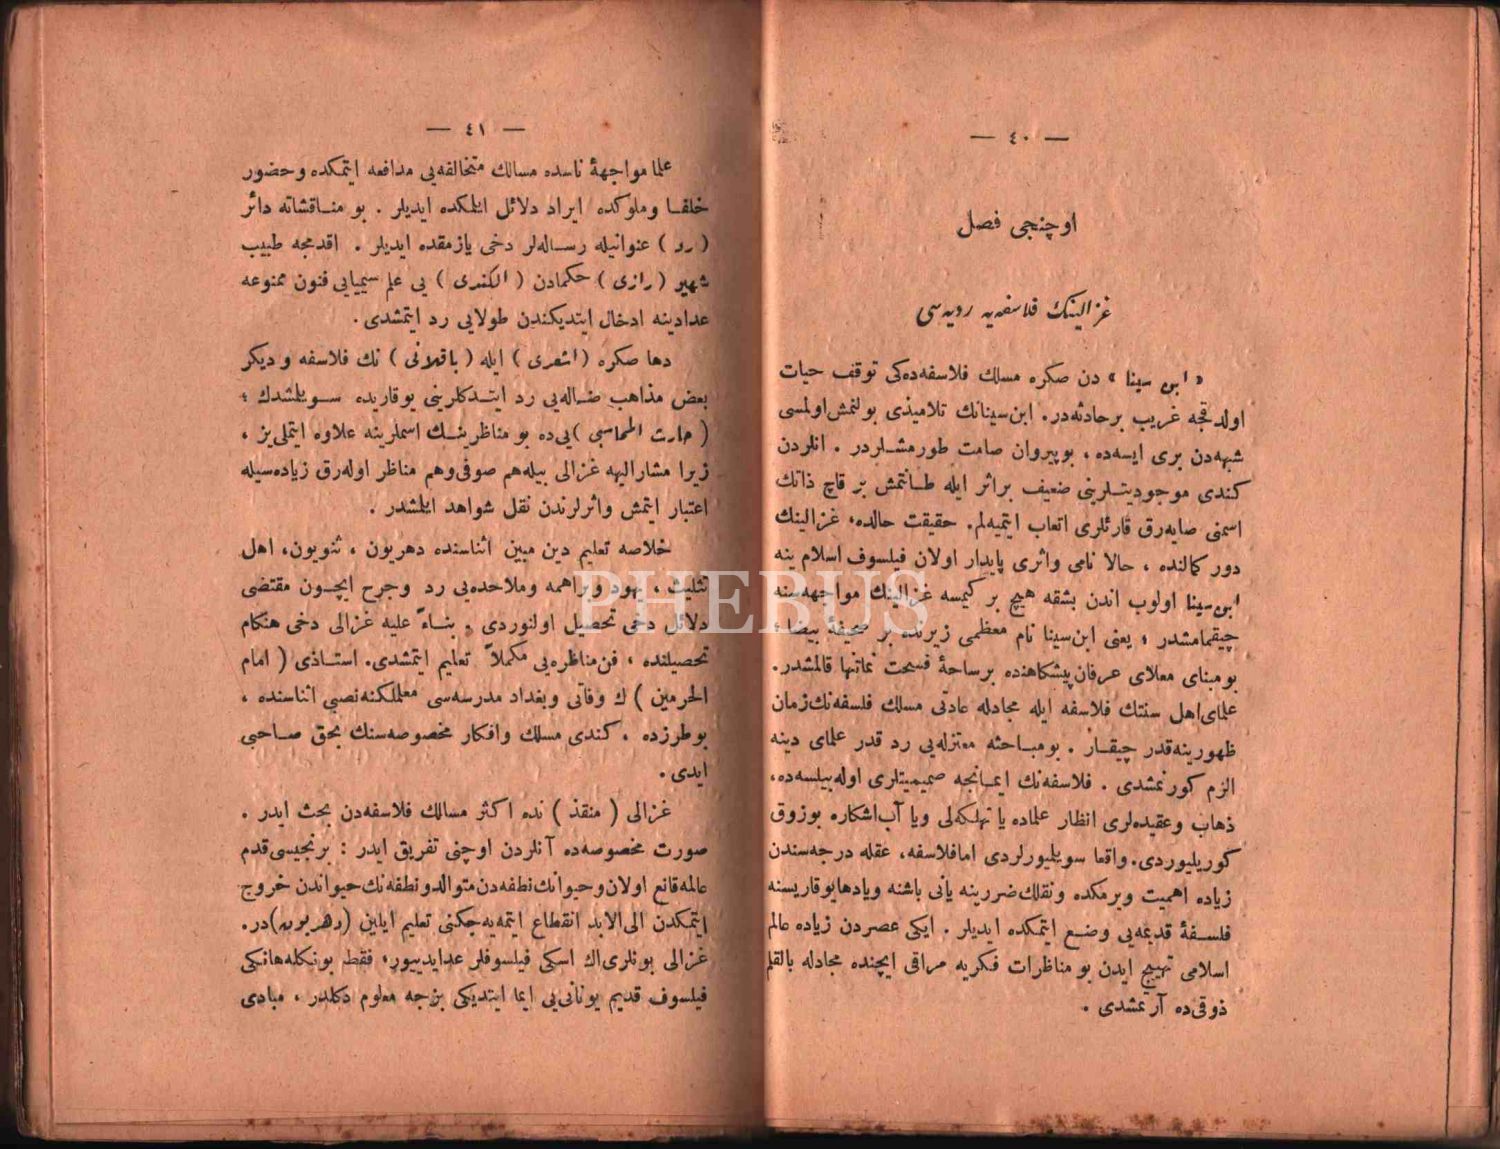 — ٤٠ —
اوچنجی فصل
غزالینك فلاسفه‌یه ردیه‌سی
« ابن سینا » دن صکره مسلك فلاسفه‌ده‌کی توقف حیات
اولدقجه غریب برحادثه‌در. ابن سینانك تلامیذی بولنمش اولمسی
شبهه‌دن بری ایسه‌ده ، بوپیروان صامت طورمشلردر . انلردن
کندی موجودیتلرینی ضعیف براثر ایله طانتمش بر قاچ ذاتك
اسمنی صایه‌رق قارئلری اتعاب ایتمیه‌لم. حقیقت حالده، غزالینك
دور کمالنده ، حالا نامی واثری پایدار اولان فیلسوف اسلام ینه
ابن سینا اولوب اندن بشقه هیچ بر کیمسه غزالینك مواجهه‌سنه
چیقمامشدر ، یعنی ابن سینا نام معظمی زیرنده بر صحیفهٔ بیضاء
بومبنای معلای عرفان پیشکاهنده برساحهٔ فسحت نماتنها قالمشدر.
علمای اهل سنتك فلاسفه ایله مجادله عادتی مسلك فلسفه‌نك زمان
ظهورینه قدر چیقار . بومباحثه معتزله‌یی رد قدر علمای دینه
الزم کورنمشدی . فلاسفه‌نك ایمانجه صمیمیتلری اوله‌بیلسه‌ده،
ذهاب وعقیده‌لری انظار علماده یا تهلکه‌لی ویا آب‌اشکاره بوزوق
کوریلیوردی. واقعا سویلیورلردی اما فلاسفه، عقله درجه‌سندن
زیاده اهمیت ویرمکده ونقلك ضررینه یانی باشنه ویادها یوقاریسنه
فلسفهٔ قدیمه‌یی وضع ایتمکده ایدیلر . ایکی عصردن زیاده عالم
اسلامی تهییج ایدن بو مناظرات فکریه مراقی ایچنده مجادله بالقلم
ذوقی‌ده آرتمشدی .
— ٤١ —
علما مواجههٔ ناسده مسالك متخالفه‌یی مدافعه ایتمکده وحضور
خلفا وملوکده ایراد دلائل ایلمکده ایدیلر . بو مناقشاته دائر
( رد ) عنوانیله رساله‌لر دخی یازمقده ایدیلر . اقدمجه طبیب
شهیر ( رازی ) حکمادن ( الکندی ) یی علم سیمیایی فنون ممنوعه
عدادینه ادخال ایتدیکندن طولایی رد ایتمشدی .
دها صکره ( اشعری ) ایله ( باقلانی ) نك فلاسفه و دیکر
بعض مذاهب ضاله‌یی رد ایتدکلرینی یوقاریده سویلشدك ؛
( حارث المحاسبی ) یی‌ده بو مناظرینك اسملرینه علاوه ایتملی‌یز ،
زیرا مشارالیهه غزالی بیله‌هم صوفی‌وهم مناظر اوله‌رق زیاده‌سیله
اعتبار ایتمش واثرلرندن نقل شواهد ایلشدر .
خلاصه تعلیم دین مبین اثناسنده دهریون ، ثنویون، اهل
تثلیث ، یهود وبراهمه وملاحده‌یی رد وجرح ایچون مقتضی
دلائل دخی تحصیل اولنوردی . بناءً علیه غزالی دخی هنکام
تحصیلنده ، فن مناظره‌یی مکملاً تعلیم ایتمشدی. استاذی ( امام
الحرمین ) ك وفاتی وبغداد مدرسه‌سی معلملکنه نصبی اثناسنده ،
بوطرزده ، کندی مسلك وافکار مخصوصه‌سنك بحق صاحبی
ایدی .
غزالی ( منقذ ) نده اکثر مسالك فلاسفه‌دن بحث ایدر .
صورت مخصوصه‌ده آنلردن اوچنی تفریق ایدر : برنجیسی قدم
عالمه قانع اولان وحیوانك نطفه‌دن متوالد ونطفه‌نك حیواندن خروج
ایتمکدن الی الابد انقطاع ایتمه‌یه‌جکنی تعلیم ایلین (دهریون) در.
غزالی بونلری اك اسکی فیلسوفلر عدایدییور، فقط بونکله هانکی
فیلسوف قدیم یونانی‌یی ایما ایتدیکی بزجه معلوم دکلدر ، مبادی
PHEBUS